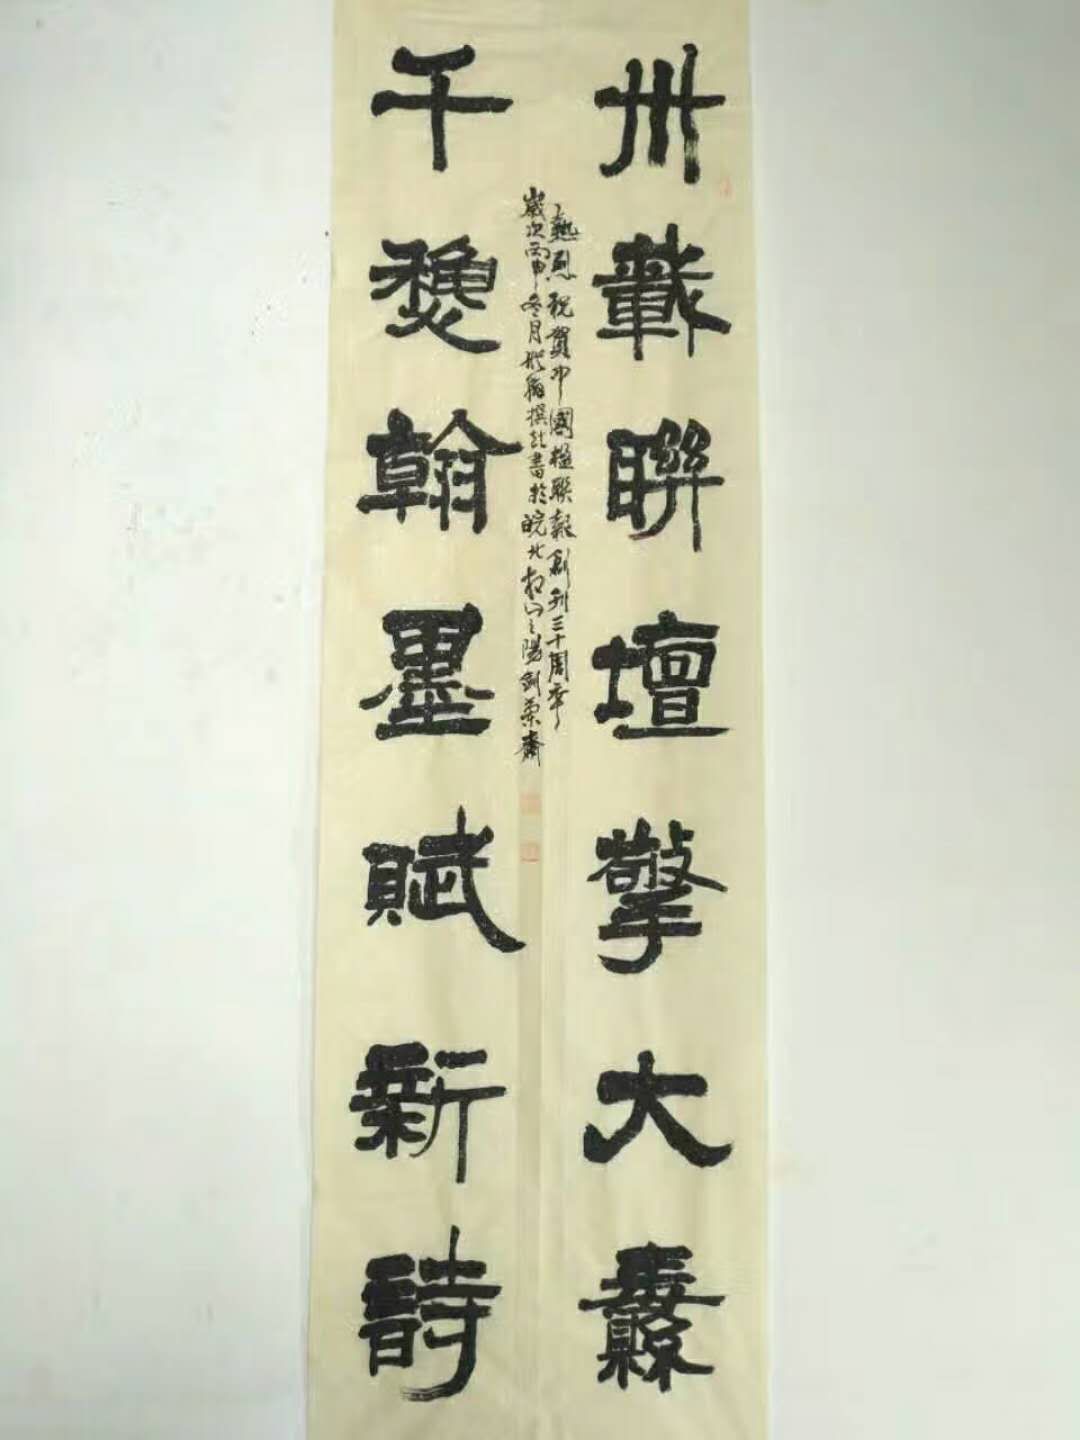 卅載聯壇擎大纛
熱烈祝賀中國楹聯報創刊三十周年
千穐翰墨賦新詩
歲次丙申冬月撰並書於皖北相山之陽劍齋